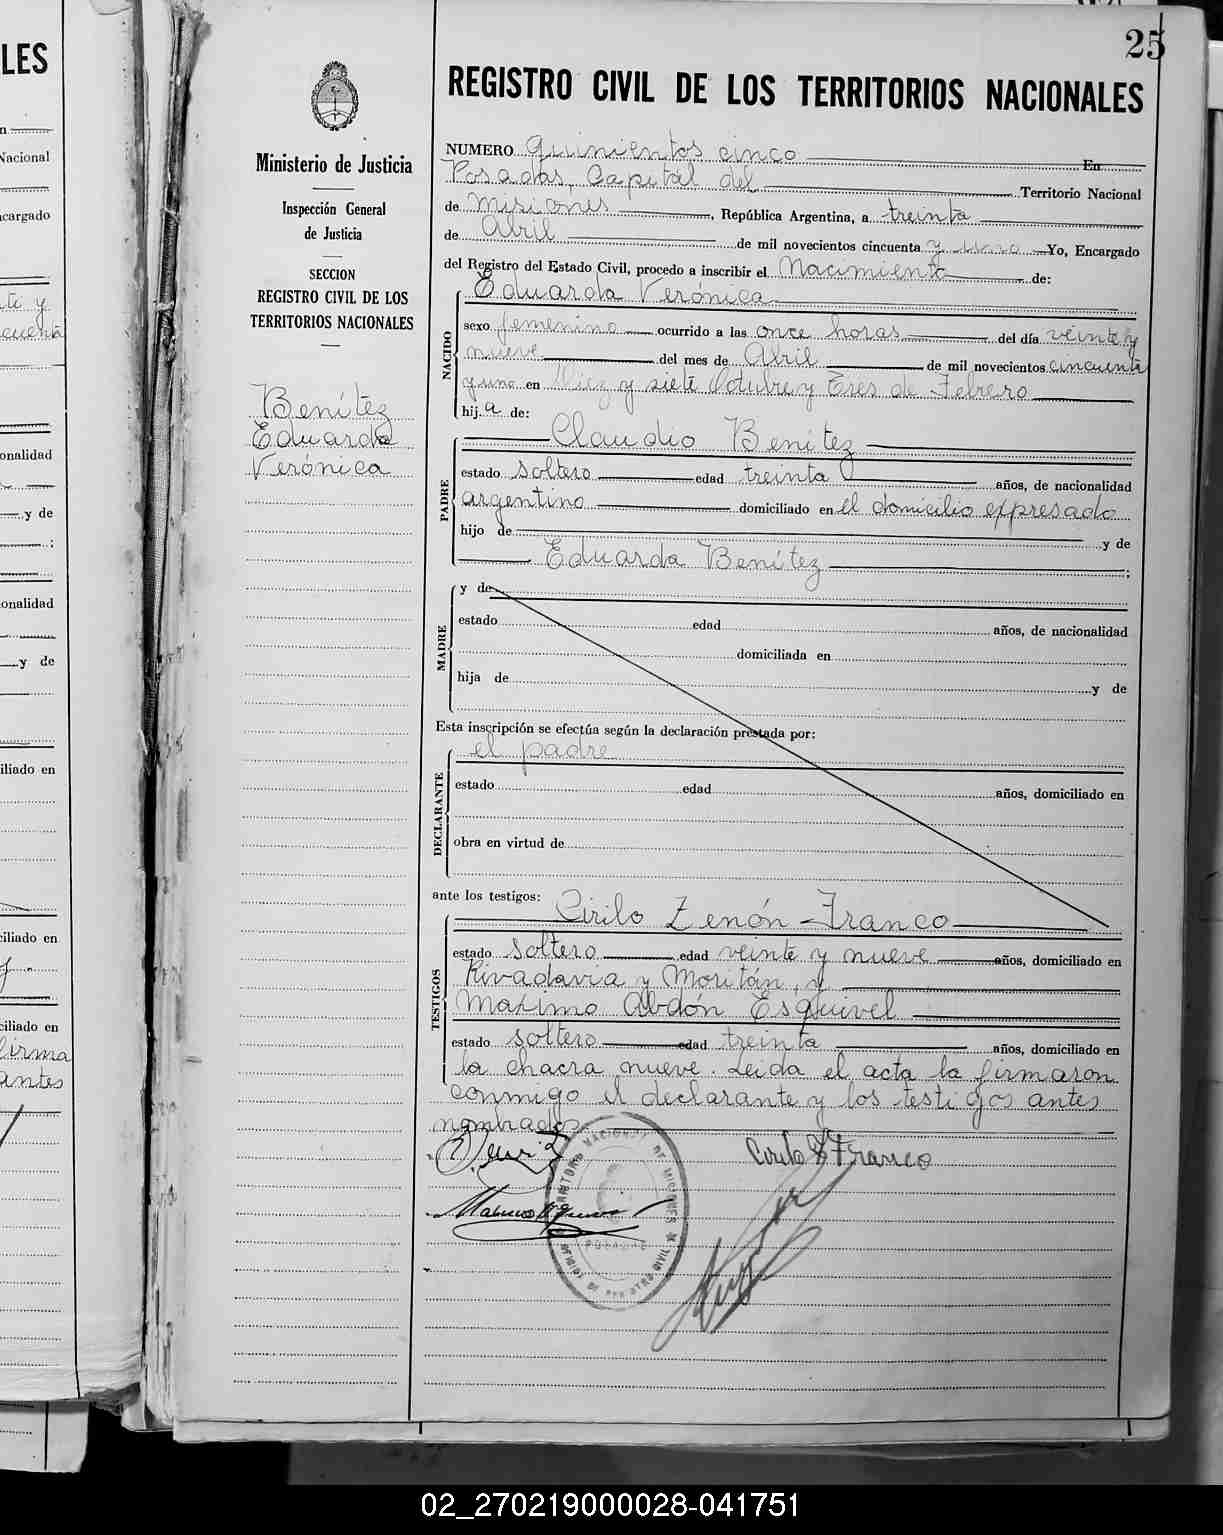 25
LES
REGISTRO CIVIL DE LOS TERRITORIOS NACIONALES
Ministerio de Justicia
Inspección General
de Justicia
SECCION
REGISTRO CIVIL DE LOS
TERRITORIOS NACIONALES
Benítez
Eduarda
Verónica
NUMERO Quinientos cinco En
Posadas, Capital del Territorio Nacional
de Misiones, República Argentina, a treinta
de Abril de mil novecientos cincuenta y uno Yo, Encargado
del Registro del Estado Civil, procedo a inscribir el Nacimiento de:
NACIDO
Eduarda Verónica
sexo femenino ocurrido a las once horas del día veinte y
nueve del mes de Abril de mil novecientos cincuenta
y uno en Diez y siete Octubre y Tres de Febrero
hija de:
PADRE
Claudio Benítez
estado soltero edad treinta años, de nacionalidad
argentino domiciliado en el domicilio expresado
hijo de y de
Eduarda Benítez ;
MADRE
y de
estado edad años, de nacionalidad
domiciliada en
hija de y de
Esta inscripción se efectúa según la declaración prestada por:
DECLARANTE
el padre
estado edad años, domiciliado en
obra en virtud de
ante los testigos:
TESTIGOS
Cirilo Zenón Franco
estado soltero edad veinte y nueve años, domiciliado en
Rivadavia y Moritán, y
Maximo Abdón Esquivel
estado soltero edad treinta años, domiciliado en
la chacra nueve. Leida el acta la firmaron
conmigo el declarante y los testigos antes
nombrados
Cirilo Z Franco
02_270219000028-041751